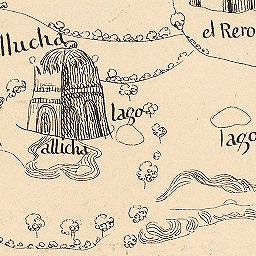 llucha
el Rero
lago
lago
allicha